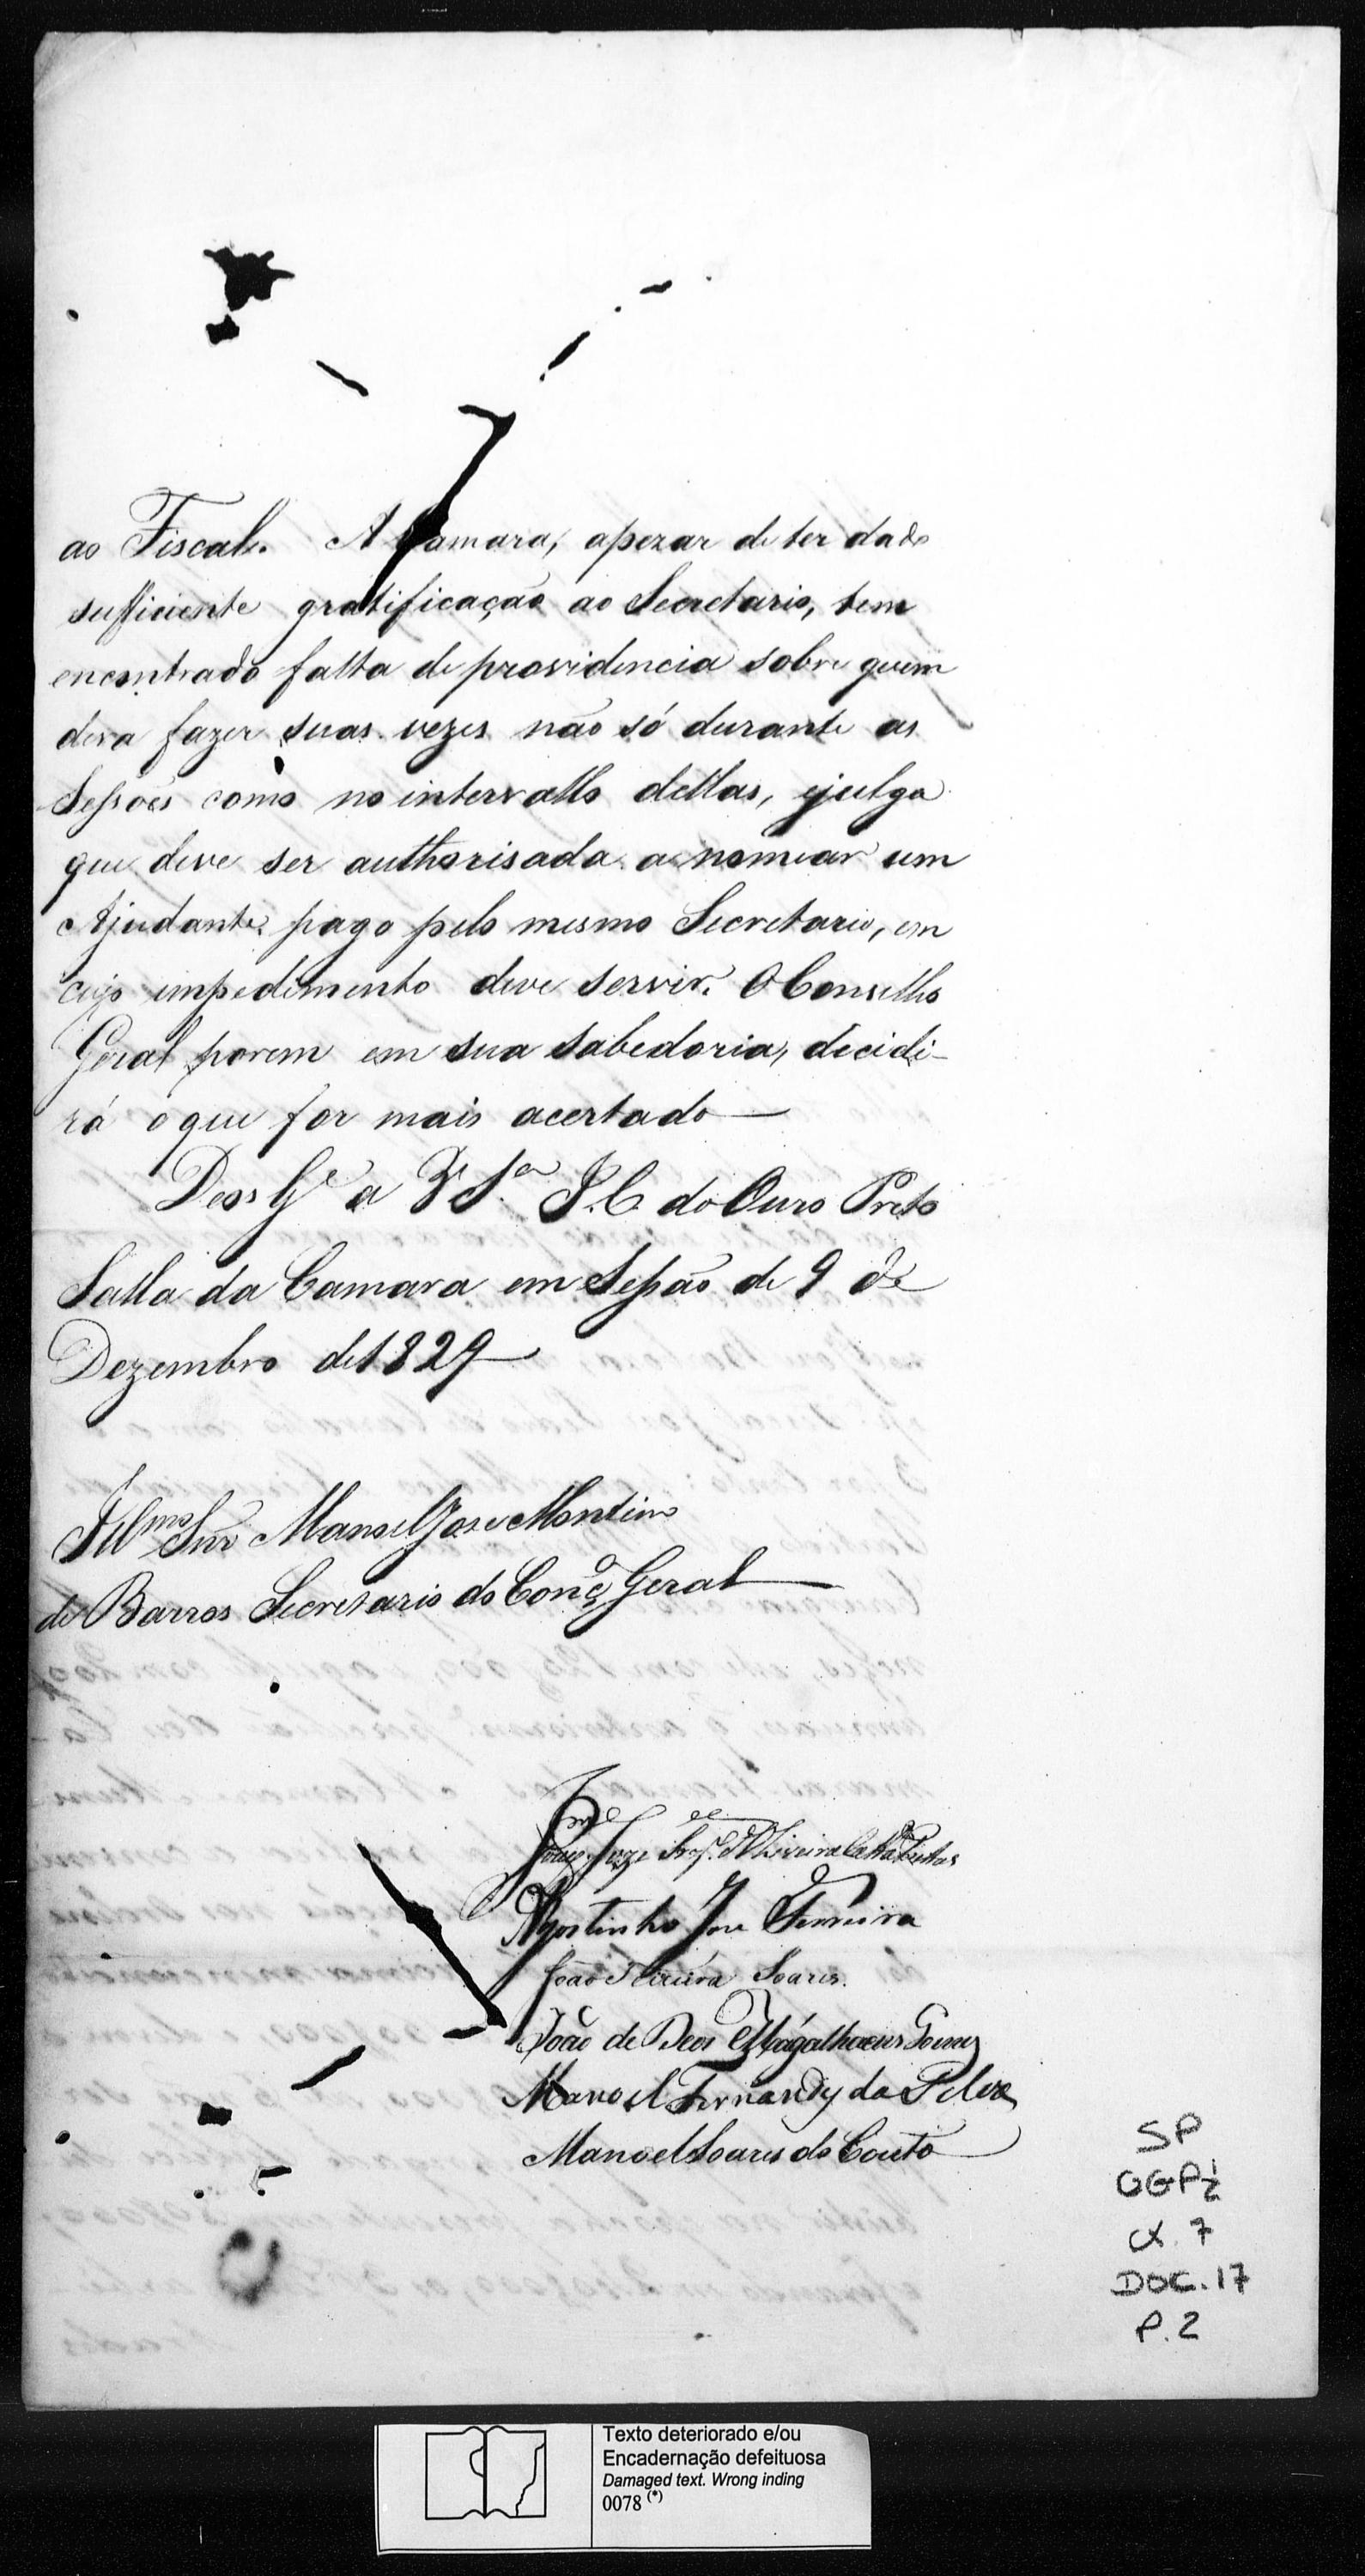 ao Fiscal. A Camara, apezar de ter dado
sufficiente gratificação ao Secretario, tem
encontrado falta de providencia sobre quem
deva fazer suas vezes não só durante as
Sessões como no intervallo dellas, ejulga
que deve ser authorisada a nomear um
Ajudante pago pelo mesmo Secretario, em
cujo impedimento deve servir. O Conselho
Geral porem em sua sabedoria, decidi-
rá o que for mais acertado
Deos Ge a V Sa I. C. do Ouro Preto
Salla da Camara em Sessão de 9 de
Dezembro de 1829
Illmo Snr Manoel Jose Monteiro
de Barros Secretario do Conço Geral
Oliveira
Agostinho Jose Ferreira
João Soares.
João de Deos Magalhaens Gomez
Manoel Fernandez da
Manoel Soares do Couto
SP
CX. 7
DOC. 17
P. 2
Texto deteriorado e/ou
Encadernação defeituosa
Damaged text. Wrong inding
0078 (*)